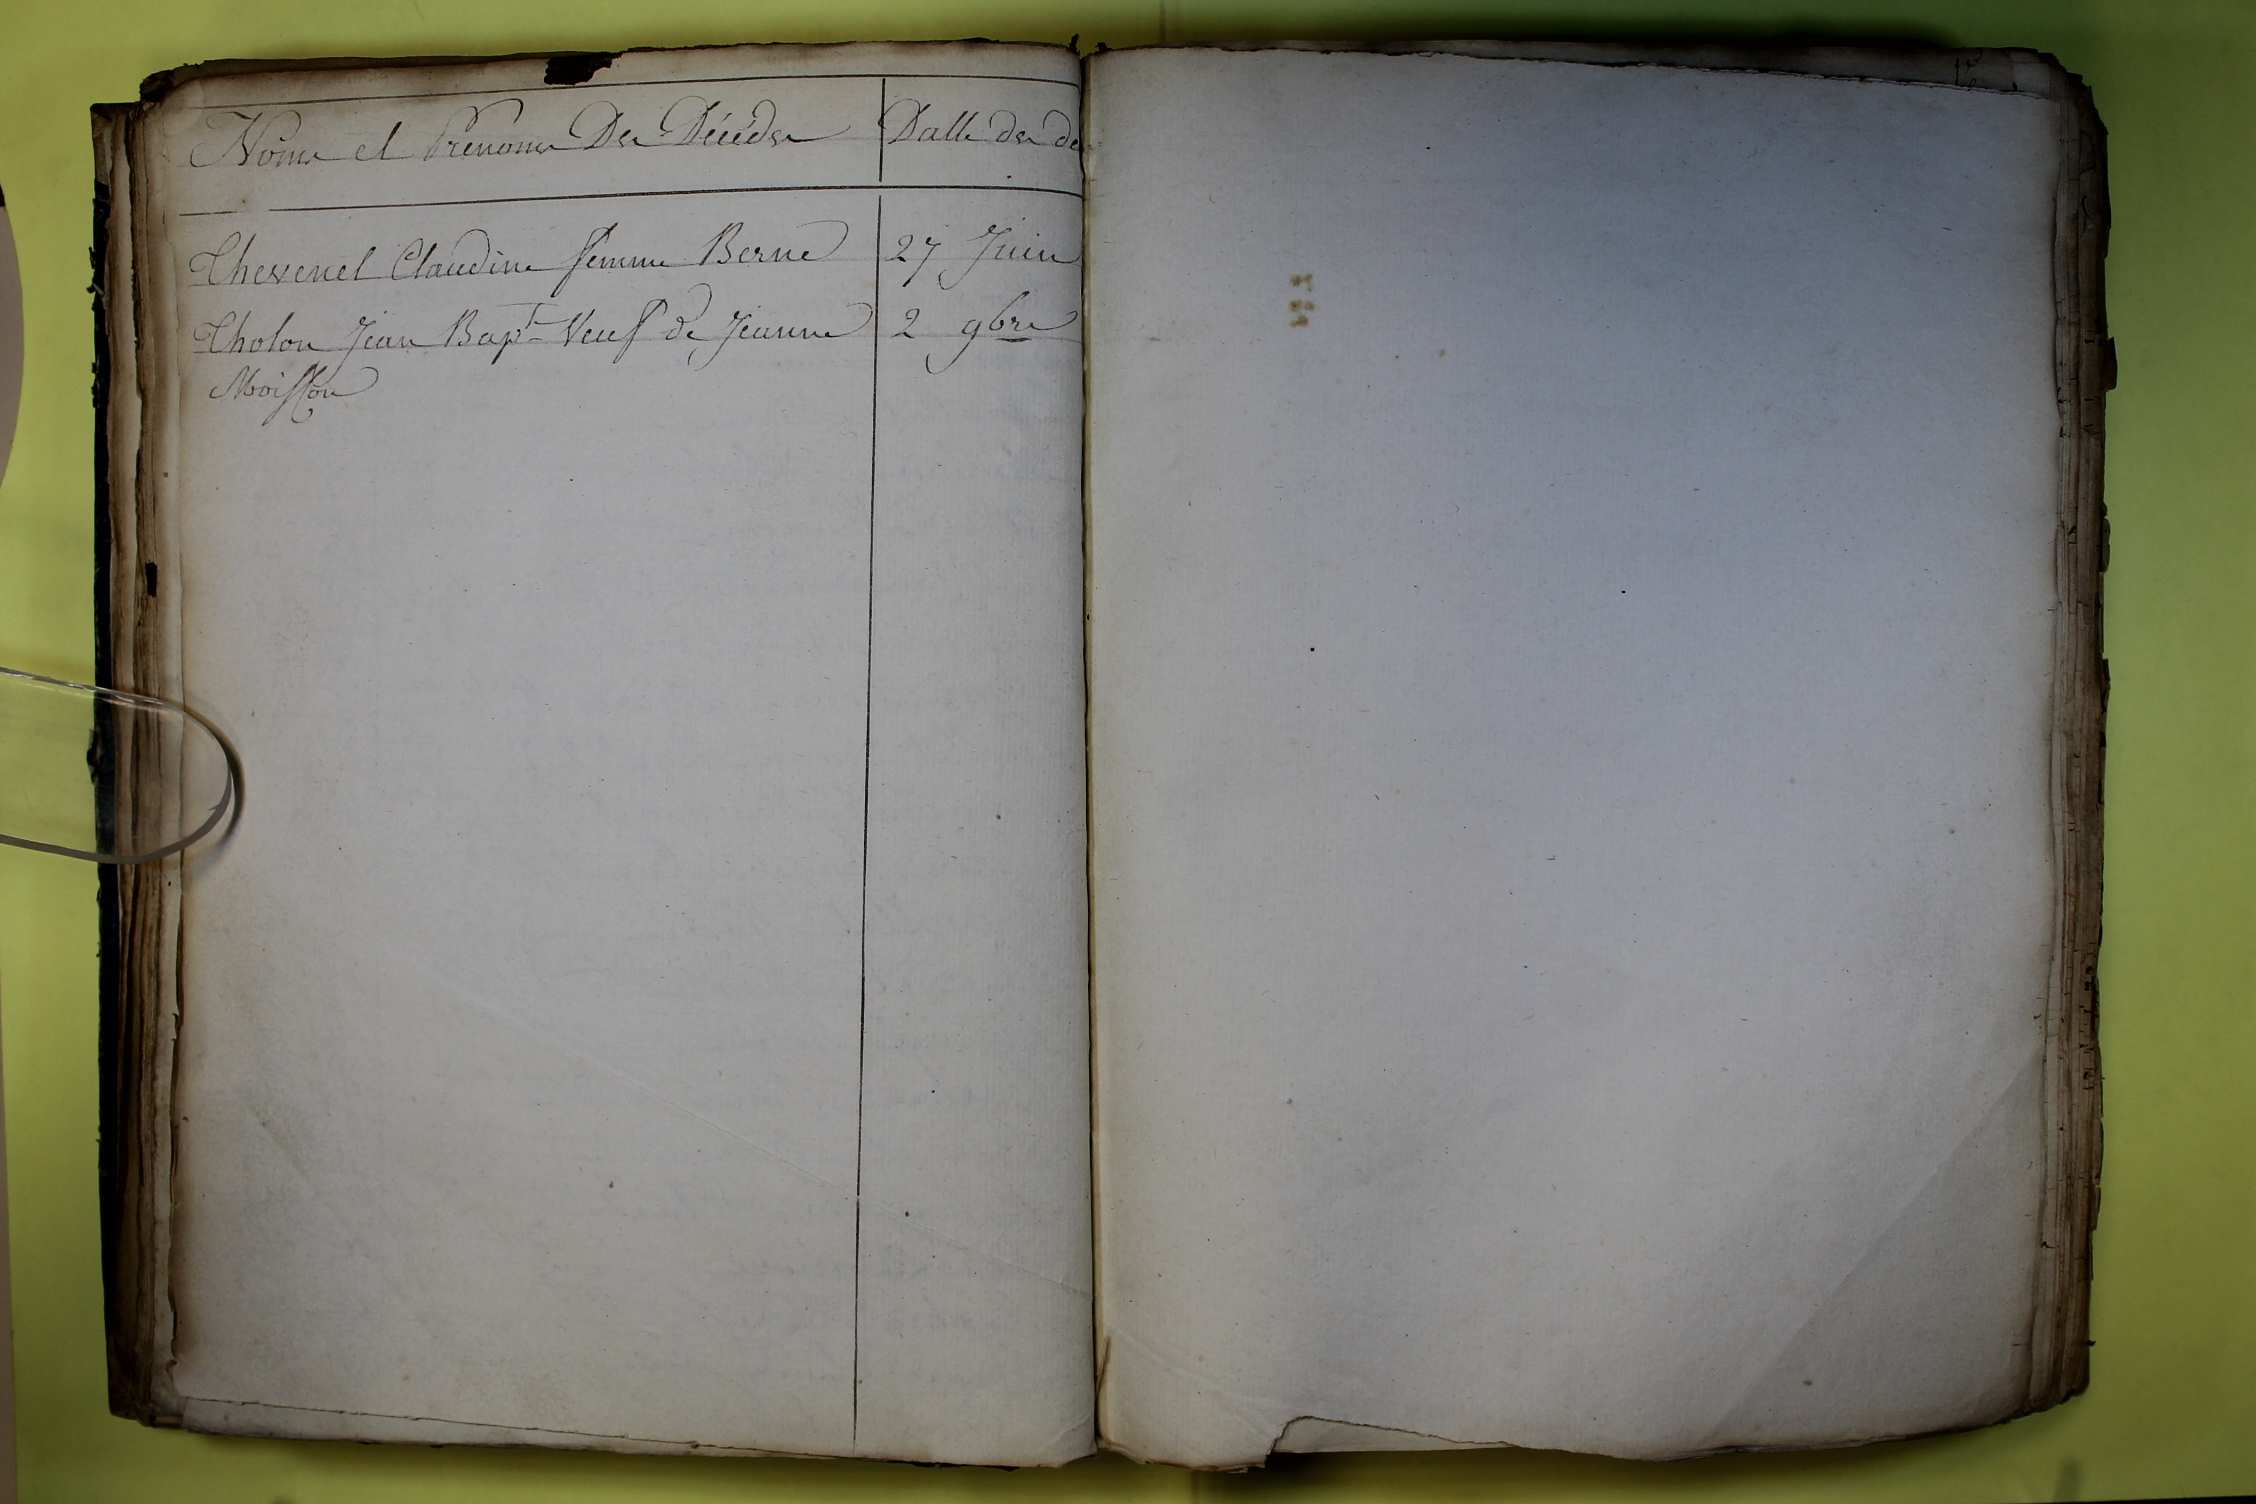 Noms et Prenoms Des Décédes Datte des dé
Thevenet Claudine femme Berne 27 Juin
Tholon Jean Bapt. Veuf de Jeanne 2 9bre
Moisson